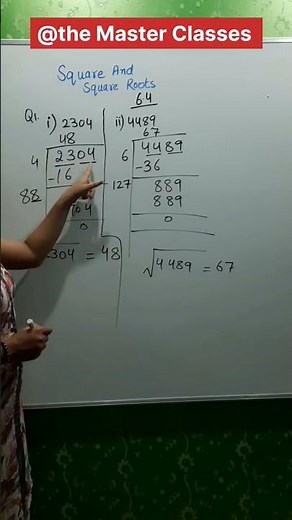 @the Master Classes
Square And
Square Roots
64
Q1. i) 2304
48
4 2304
-16
88 704
0
304 = 48
ii) 4489
67
6 4489
-36
127 889
889
0
√4489 = 67